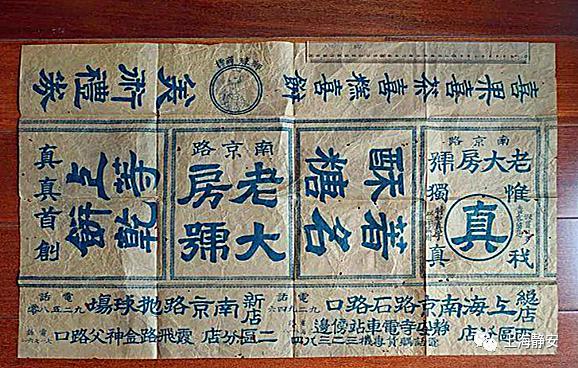 喜果喜茶喜糕喜餅
美術禮券
南京路
老大房號
惟我獨真
真
著名
酥糖
南京路
老大房號
真真首創
總店
上海南京路石路口
西區分店
靜安寺電車站傍邊
電話購貨專機三二三八四
新店
南京路拋球場
電話九二五八零
二區分店
霞飛路金神父路口
上海静安